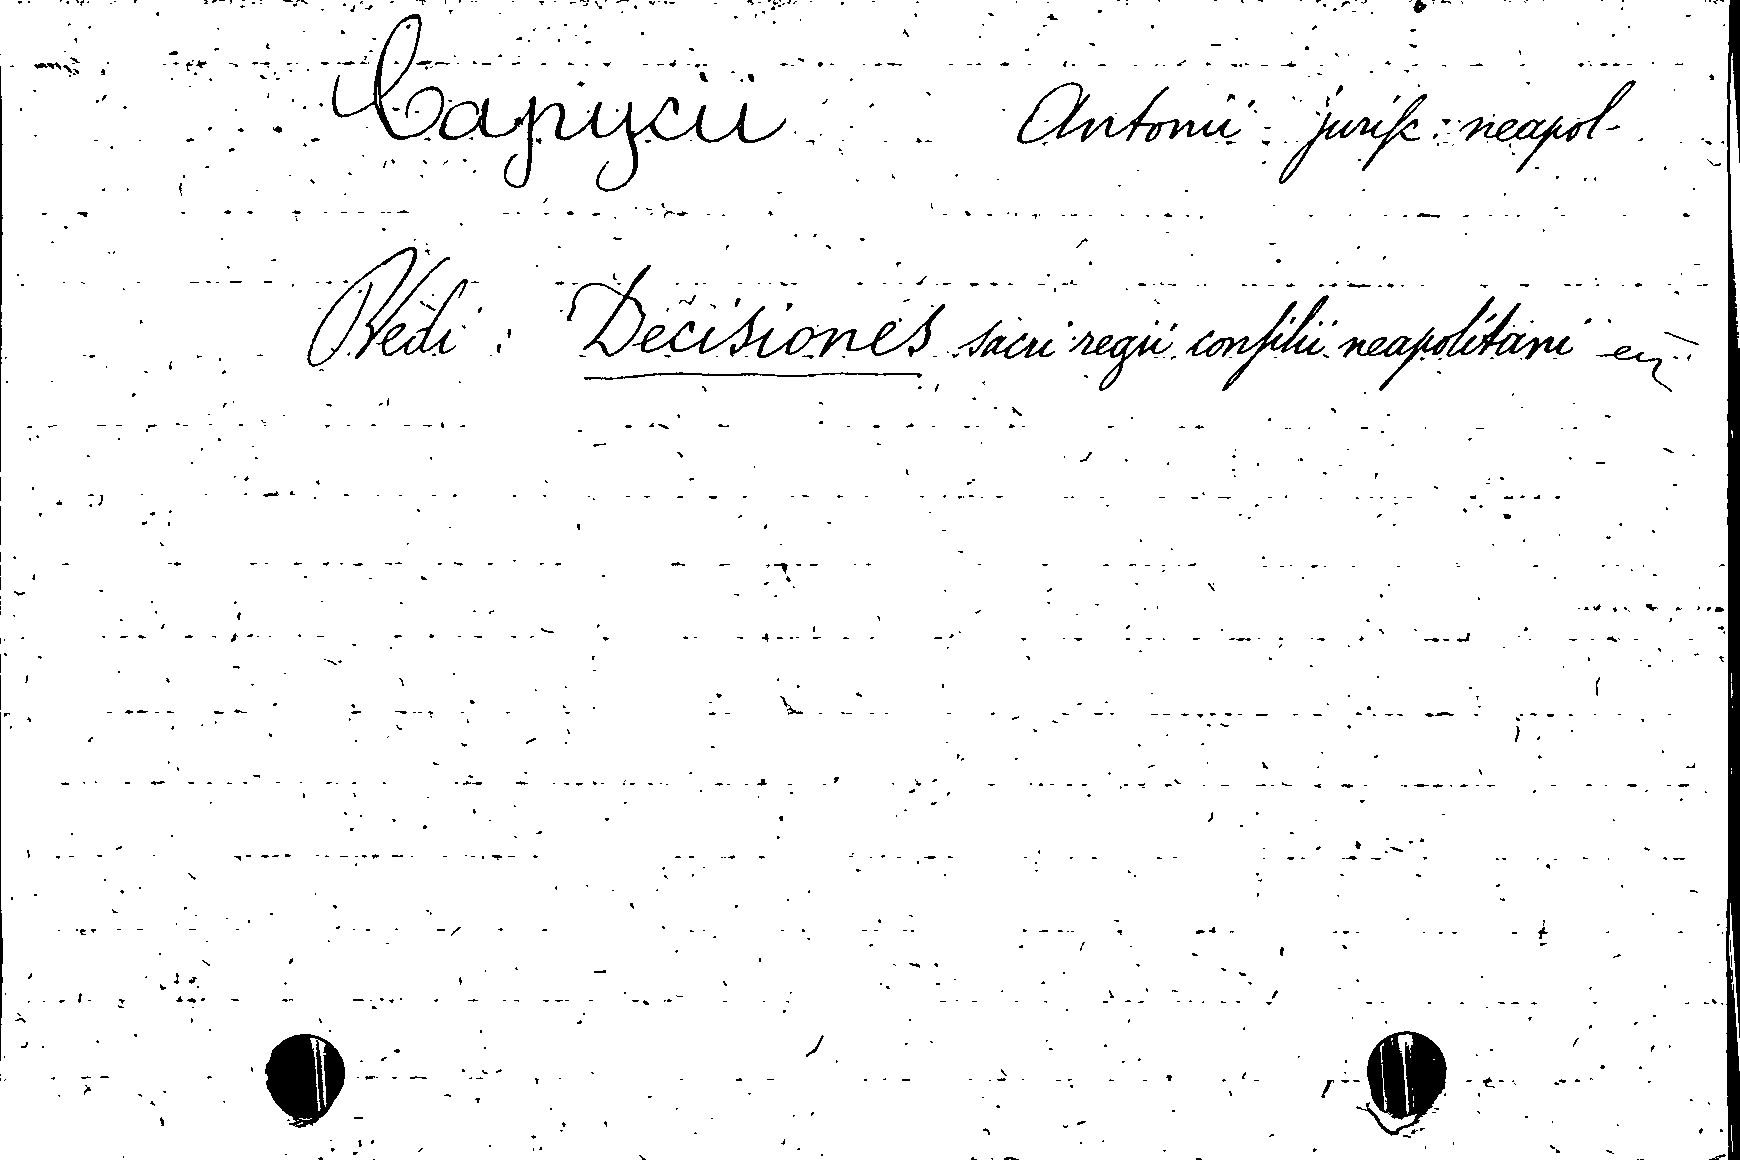 Capycii Antonii jurisc: neapol-
Vedi: Decisiones sacri regii consilii neapolitani